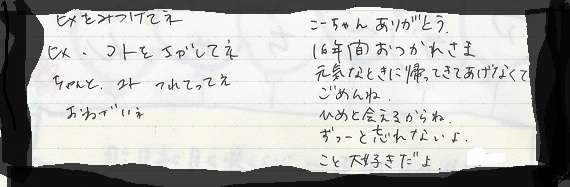 ヒメをみつけてネ
ヒメ、コトをさがしてネ
ちゃんと、コト つれてってネ
おねがいネ
こーちゃん ありがとう.
16年間おつかれさま
元気なときに帰ってきてあげなくて
ごめんね.
ひめと会えるからね.
ずっーと忘れないよ.
こと大好きだよ